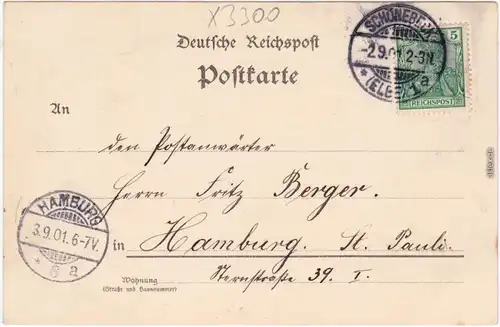 X3300
SCHÖNEBECK
-2.9.01.2-3N.
* (ELBE) 1a
5
REICHSPOST
Deutsche Reichspost
Postkarte
An
den Postanwärter
Herrn Fritz Berger.
in Hamburg. St. Pauli.
Sternstraße 39. I.
Wohnung
(Straße und Hausnummer)
HAMBURG
3.9.01.6-7V.
* 6 a